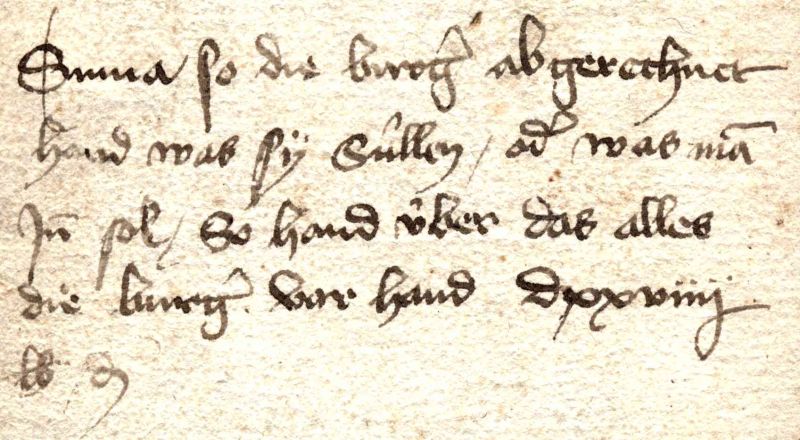 Suma so die burg̉ abgerechnet
hand was sy Sůllen / od̉ was mā
Jn̄ sol / So hand v̊ber das alles
die burg̉ vor hand dxxviiij
lb d